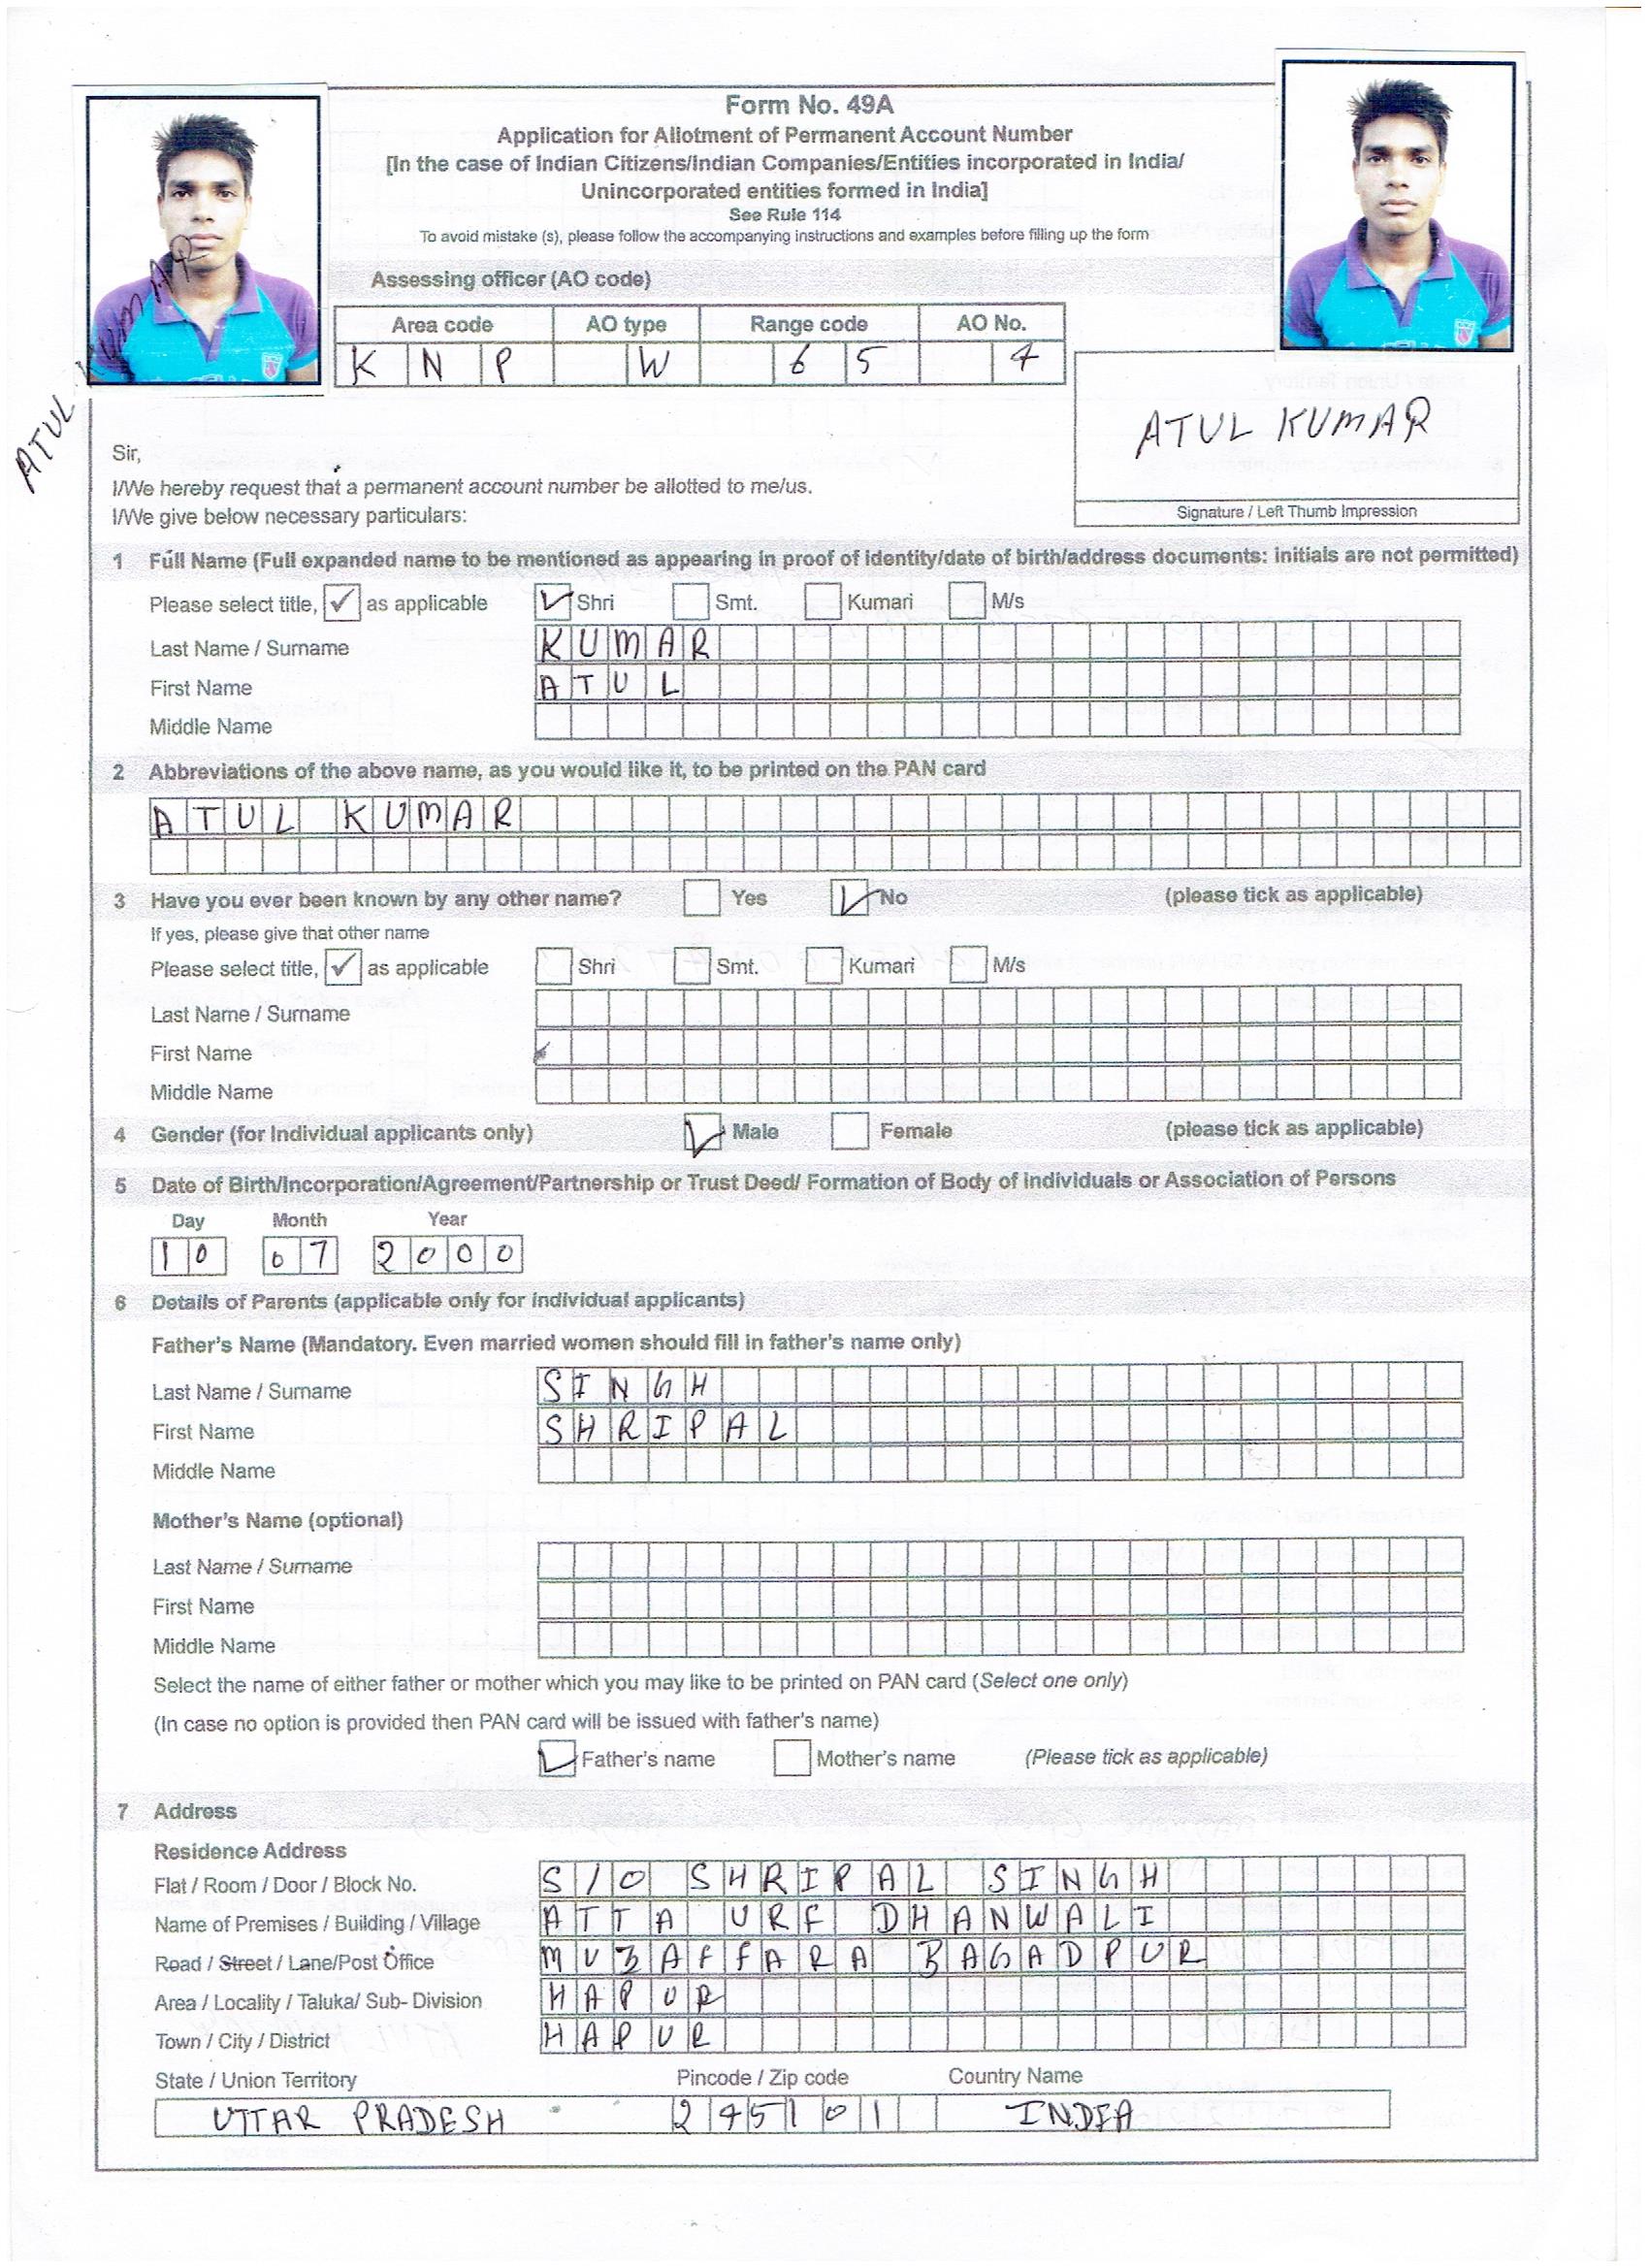 Form No. 49A
Application for Allotment of Permanent Account Number
[In the case of Indian Citizens/Indian Companies/Entities incorporated in India/
Unincorporated entities formed in India]
See Rule 114
To avoid mistake (s), please follow the accompanying instructions and examples before filling up the form
Assessing officer (AO code)
Area code AO type Range code AO No.
K N P W 6 5 4
ATUL KUMAR
ATUL KUMAR
Signature / Left Thumb Impression
Sir,
I/We hereby request that a permanent account number be allotted to me/us.
I/We give below necessary particulars:
1 Full Name (Full expanded name to be mentioned as appearing in proof of identity/date of birth/address documents: initials are not permitted)
Please select title, ✓ as applicable ✓ Shri Smt. Kumari M/s
Last Name / Surname KUMAR
First Name ATUL
Middle Name
2 Abbreviations of the above name, as you would like it, to be printed on the PAN card
ATUL KUMAR
3 Have you ever been known by any other name? Yes ✓ No (please tick as applicable)
If yes, please give that other name
Please select title, ✓ as applicable Shri Smt. Kumari M/s
Last Name / Surname
First Name
Middle Name
4 Gender (for Individual applicants only) ✓ Male Female (please tick as applicable)
5 Date of Birth/Incorporation/Agreement/Partnership or Trust Deed/ Formation of Body of individuals or Association of Persons
Day Month Year
10 07 2000
6 Details of Parents (applicable only for individual applicants)
Father's Name (Mandatory. Even married women should fill in father's name only)
Last Name / Surname SINGH
First Name SHRIPAL
Middle Name
Mother's Name (optional)
Last Name / Surname
First Name
Middle Name
Select the name of either father or mother which you may like to be printed on PAN card (Select one only)
(In case no option is provided then PAN card will be issued with father's name)
✓ Father's name Mother's name (Please tick as applicable)
7 Address
Residence Address
Flat / Room / Door / Block No. S/O SHRIPAL SINGH
Name of Premises / Building / Village ATTA URF DHANWALI
Road / Street / Lane/Post Office MUZAFFARA BAGADPUR
Area / Locality / Taluka/ Sub- Division HAPUR
Town / City / District HAPUR
State / Union Territory Pincode / Zip code Country Name
UTTAR PRADESH 245101 INDIA